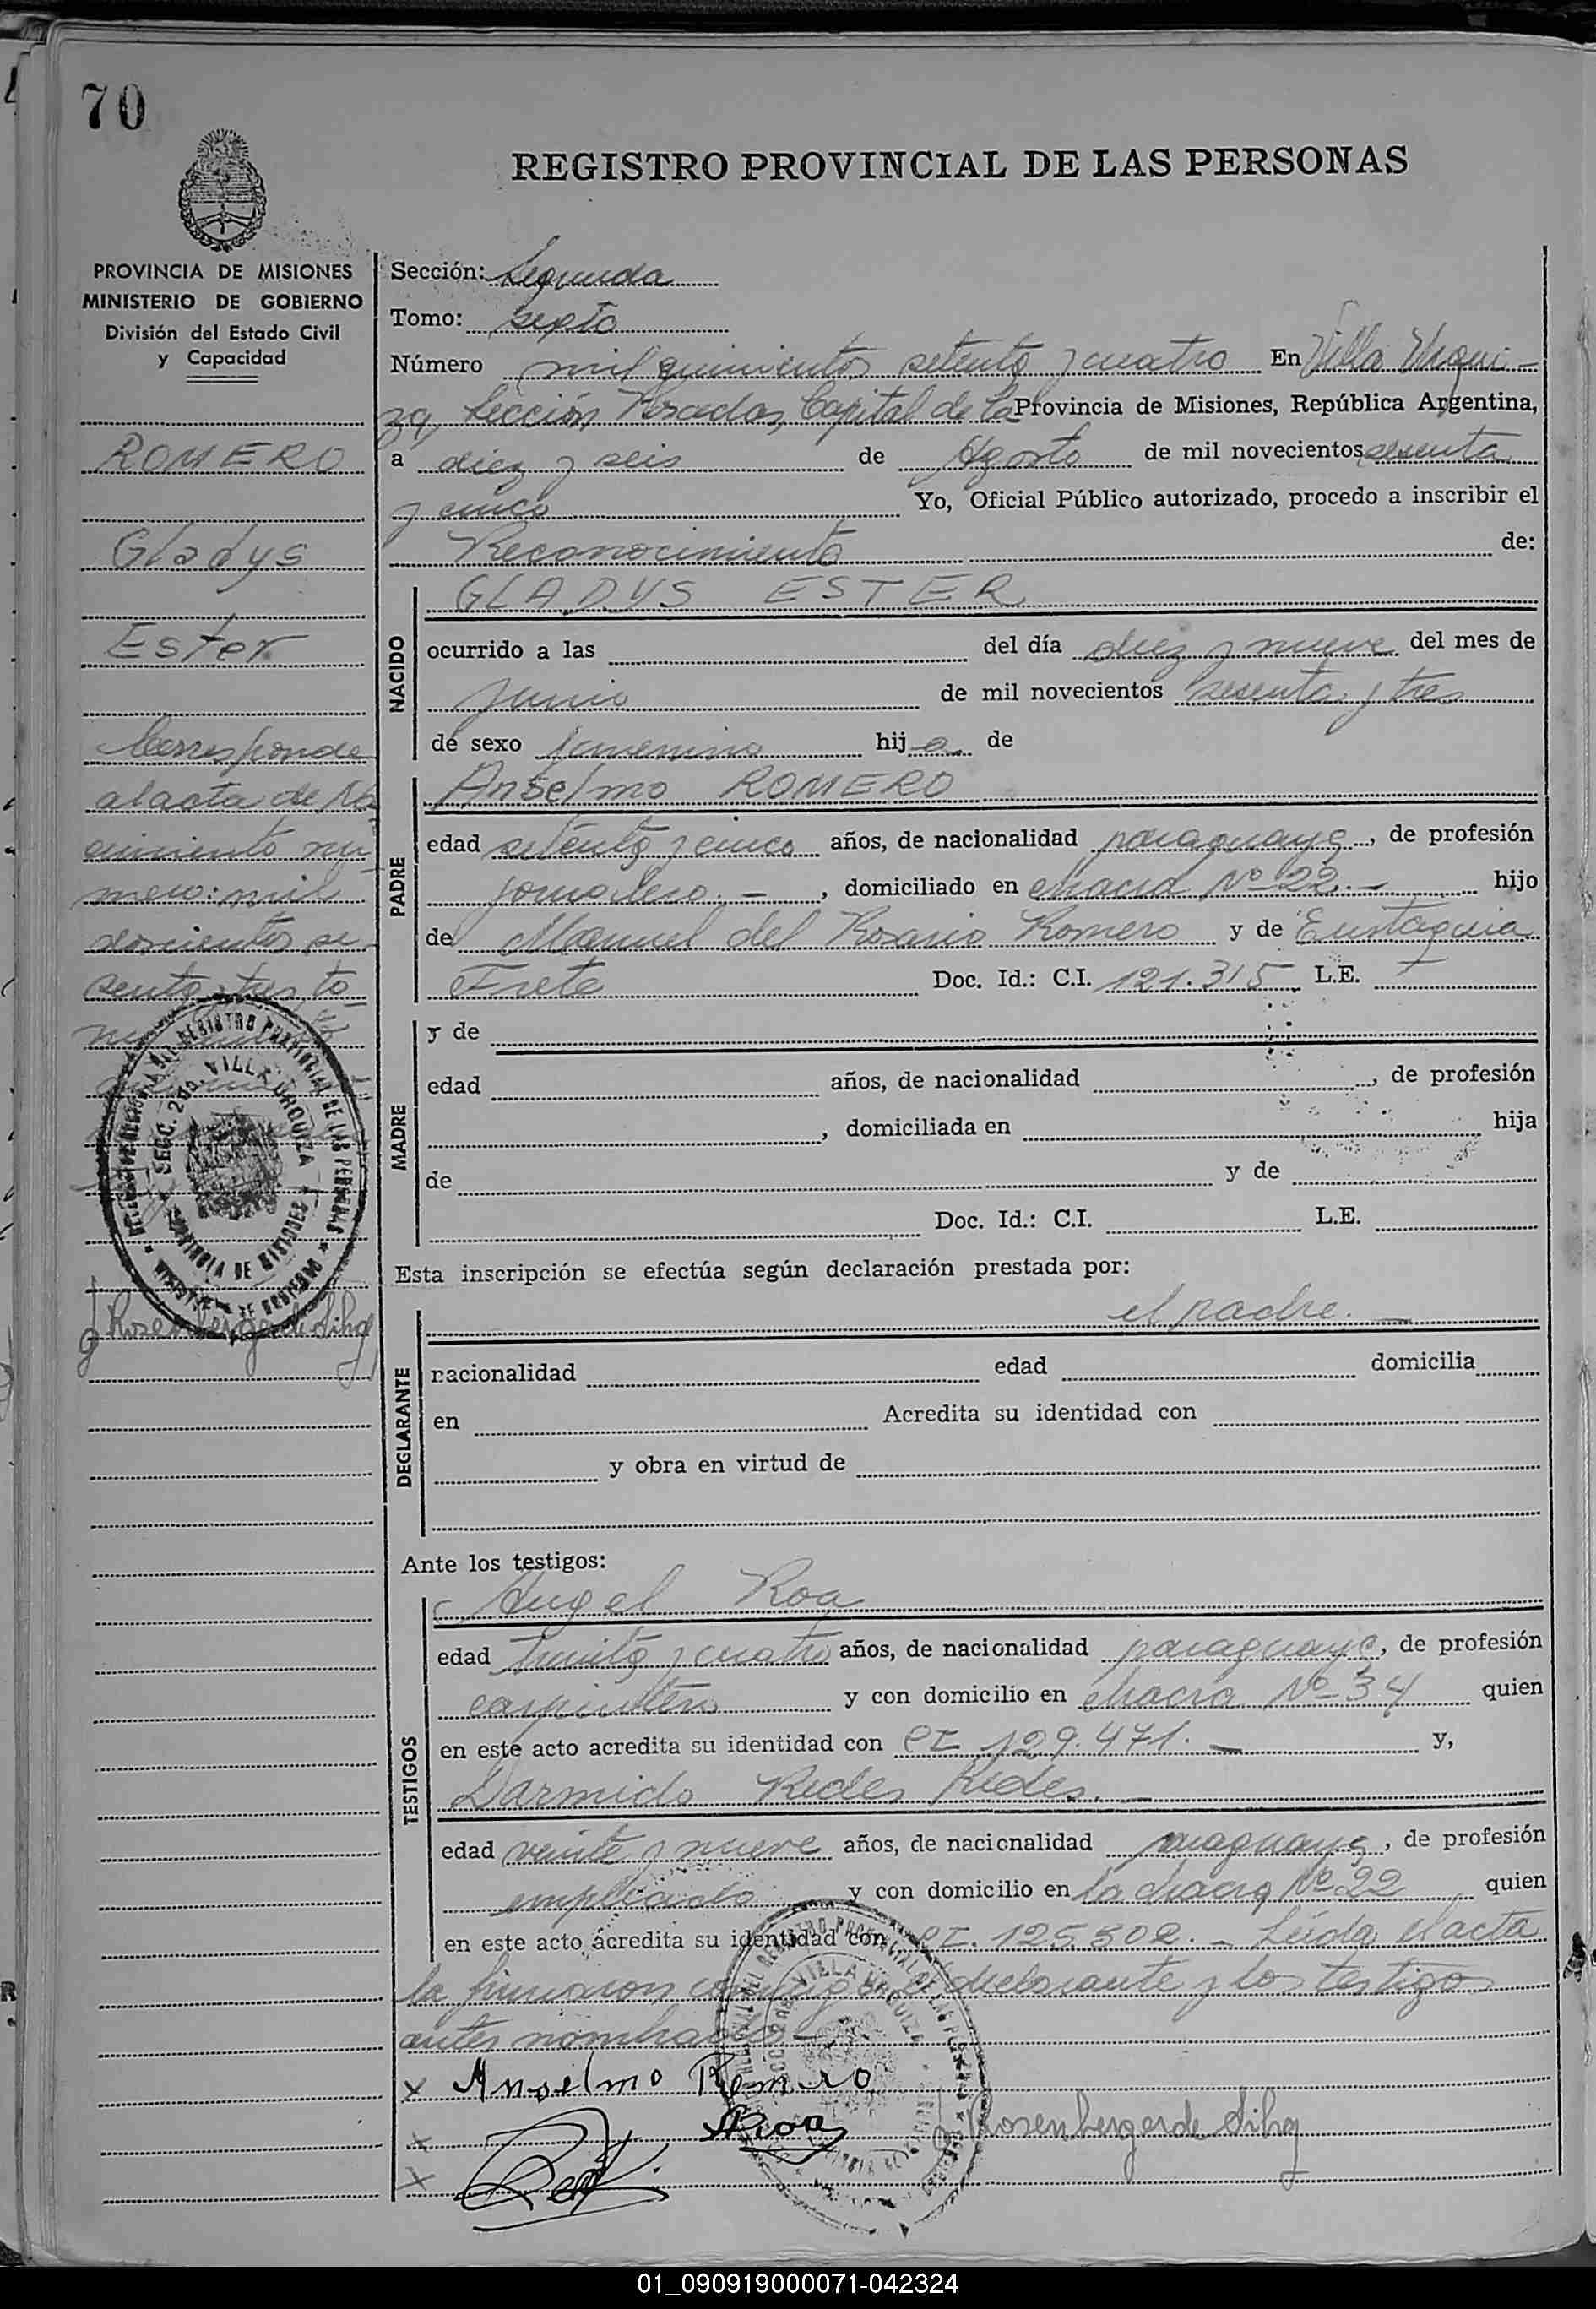 70
REGISTRO PROVINCIAL DE LAS PERSONAS
PROVINCIA DE MISIONES
MINISTERIO DE GOBIERNO
División del Estado Civil
y Capacidad
ROMERO
Gladys
Ester
Corresponde
al acta de Na
cimiento nu
mero: mil
doscientos se
senta y tres, to
REGISTRO PROVINCIAL DE LAS PERSONAS
SECC. 2da. VILLA URQUIZA
PROVINCIA DE MISIONES
Sección: Segunda
Tomo: sexto
Número mil quinientos setenta y cuatro En Villa Urqui-
za, Sección Posadas, Capital de la Provincia de Misiones, República Argentina,
a diez y seis de Agosto de mil novecientos sesenta
y cinco Yo, Oficial Público autorizado, procedo a inscribir el
Reconocimiento de:
NACIDO
GLADYS ESTER
ocurrido a las del día diez y nueve del mes de
junio de mil novecientos sesenta y tres
de sexo femenino hija de
PADRE
Anselmo ROMERO
edad setenta y cinco años, de nacionalidad paraguaya, de profesión
jornalero.-, domiciliado en chacra Nº 22.- hijo
de Manuel del Rosario Romero y de Eustaquia
Frete Doc. Id.: C.I. 121.315 L.E.
MADRE
y de
edad años, de nacionalidad , de profesión
, domiciliada en hija
de y de
Doc. Id.: C.I. L.E.
Esta inscripción se efectúa según declaración prestada por:
el padre.-
DECLARANTE
nacionalidad edad domicilia
en Acredita su identidad con
y obra en virtud de
Ante los testigos:
TESTIGOS
Angel Roa
edad treinta y cuatro años, de nacionalidad paraguaya, de profesión
carpintero y con domicilio en chacra Nº 34 quien
en este acto acredita su identidad con CI 129.471.- y,
Darmido Redes Redes.-
edad veinte y nueve años, de nacionalidad paraguaya, de profesión
empleado y con domicilio en la chacra Nº 22 quien
en este acto acredita su identidad con CI. 125.502.- Leída el acta
la firmaron conmigo el declarante y los testigos
antes nombrados
x Anselmo Romero
x Roa
x
01_090919000071-042324